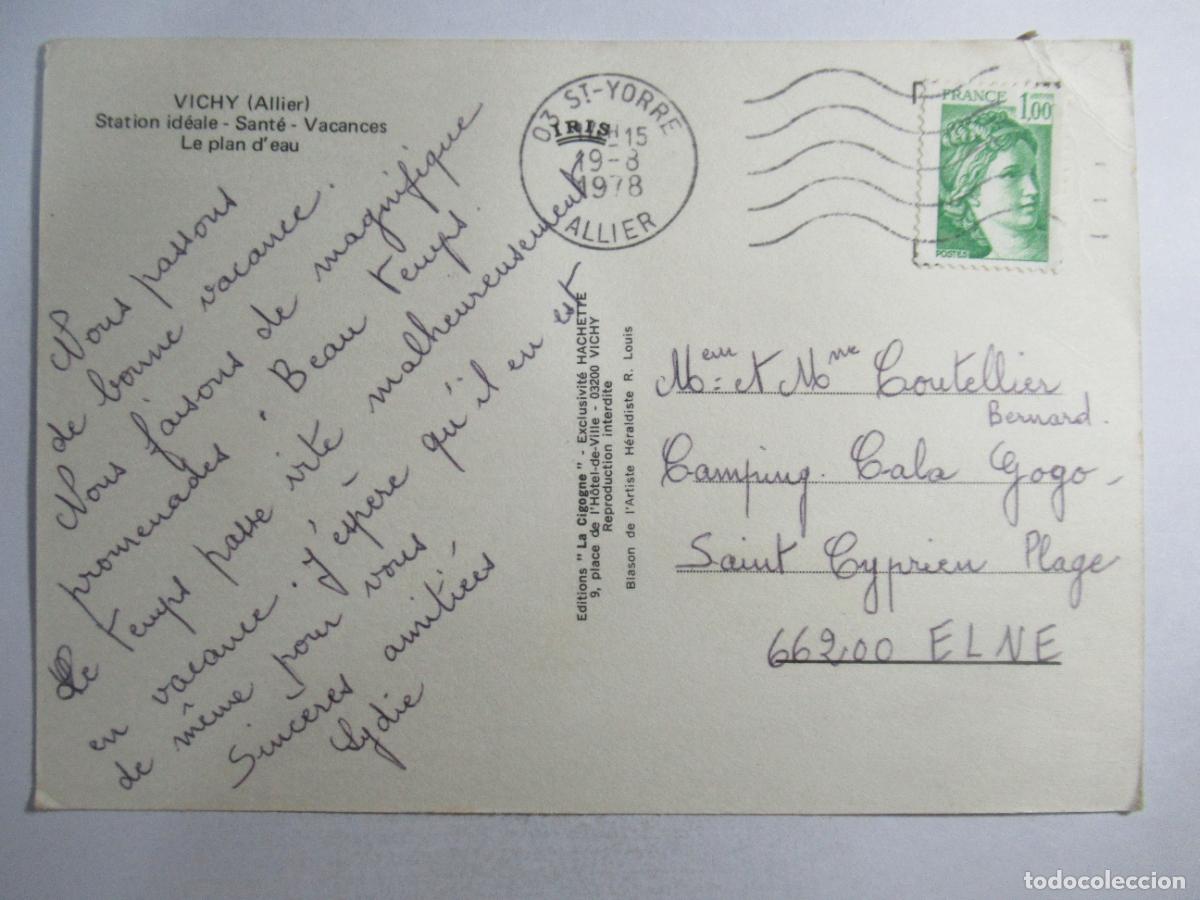 VICHY (Allier)
Station idéale - Santé - Vacances
Le plan d'eau
Nous passons
de bonne vacance.
Nous faisons de magnifique
promenades. Beau temps.
Le temps passe vite malheureusement
en vacance. J'espère qu'il en est
de même pour vous
Sincères amitiées
Lydie
03 ST-YORRE
IRIS
15
19-8
1978
ALLIER
FRANCE
1,00
POSTES
Editions "La Cigogne" - Exclusivité HACHETTE
9, place de l'Hôtel-de-Ville - 03200 VICHY
Reproduction interdite
Blason de l'Artiste Héraldiste R. Louis
et Mme Coutellier
Bernard.
Camping Cala Gogo -
Saint Cyprien Plage
66200 ELNE
todocoleccion